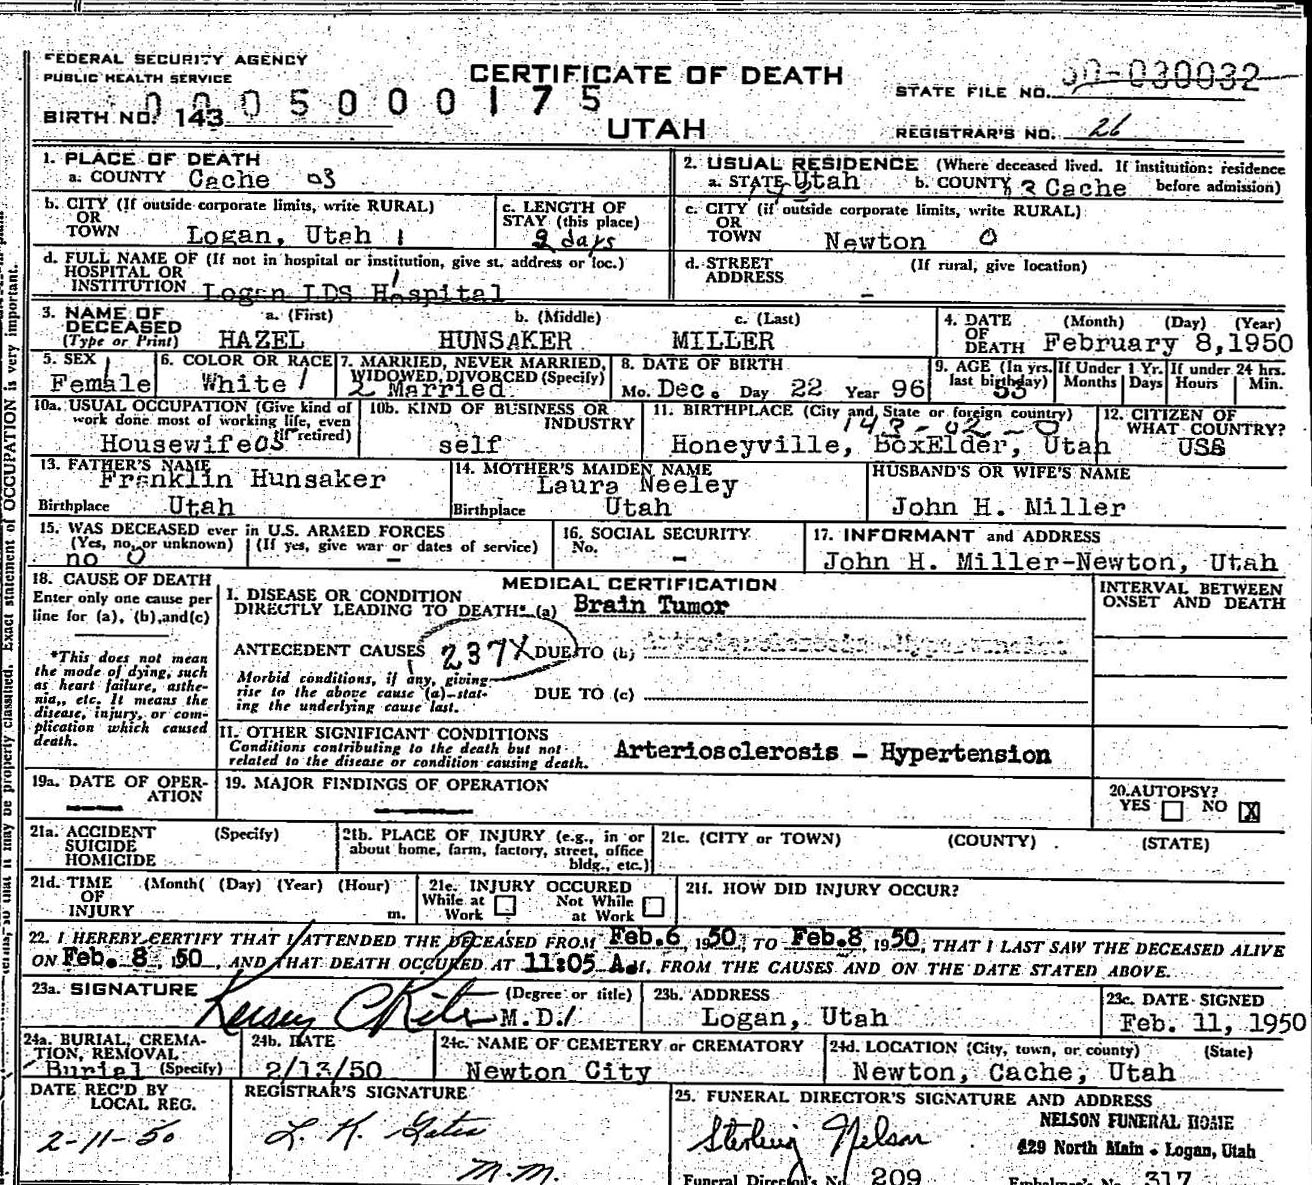 FEDERAL SECURITY AGENCY
PUBLIC HEALTH SERVICE
CERTIFICATE OF DEATH
UTAH
STATE FILE NO. 50-030032
0005000175
BIRTH NO. 143
REGISTRAR'S NO. 26
1. PLACE OF DEATH
a. COUNTY Cache 03
2. USUAL RESIDENCE (Where deceased lived. If institution: residence before admission)
a. STATE Utah b. COUNTY 3 Cache
b. CITY (If outside corporate limits, write RURAL)
OR TOWN Logan, Utah 1
c. LENGTH OF STAY (this place)
2 days
c. CITY (if outside corporate limits, write RURAL)
OR TOWN Newton 0
d. FULL NAME OF (If not in hospital or institution, give st. address or loc.)
HOSPITAL OR INSTITUTION Logan LDS Hospital
d. STREET ADDRESS (If rural, give location)
-
3. NAME OF DECEASED (Type or Print)
a. (First) b. (Middle) c. (Last)
HAZEL HUNSAKER MILLER
4. DATE OF DEATH (Month) (Day) (Year)
February 8, 1950
5. SEX
Female
6. COLOR OR RACE
White
7. MARRIED, NEVER MARRIED, WIDOWED, DIVORCED (Specify)
2 Married
8. DATE OF BIRTH
Mo. Dec. Day 22 Year 96
9. AGE (In yrs. last birthday)
53
If Under 1 Yr. Months Days
If under 24 hrs. Hours Min.
10a. USUAL OCCUPATION (Give kind of work done most of working life, even if retired)
Housewife
10b. KIND OF BUSINESS OR INDUSTRY
self
11. BIRTHPLACE (City and State or foreign country)
143-02-0
Honeyville, BoxElder, Utah
12. CITIZEN OF WHAT COUNTRY?
13. FATHER'S NAME
Franklin Hunsaker
Birthplace Utah
14. MOTHER'S MAIDEN NAME
Laura Neeley
Birthplace Utah
HUSBAND'S OR WIFE'S NAME
John H. Miller
15. WAS DECEASED ever in U.S. ARMED FORCES
(Yes, no, or unknown) (If yes, give war or dates of service)
no 0 -
16. SOCIAL SECURITY No.
-
17. INFORMANT and ADDRESS
John H. Miller-Newton, Utah
18. CAUSE OF DEATH
Enter only one cause per line for (a), (b), and (c)
*This does not mean the mode of dying, such as heart failure, asthenia, etc. It means the disease, injury, or complication which caused death.
MEDICAL CERTIFICATION
INTERVAL BETWEEN ONSET AND DEATH
I. DISEASE OR CONDITION
DIRECTLY LEADING TO DEATH* (a) Brain Tumor
ANTECEDENT CAUSES 237X DUE TO (b)
Morbid conditions, if any, giving rise to the above cause (a) stating the underlying cause last.
DUE TO (c)
II. OTHER SIGNIFICANT CONDITIONS
Conditions contributing to the death but not related to the disease or condition causing death.
Arteriosclerosis - Hypertension
19a. DATE OF OPERATION
19. MAJOR FINDINGS OF OPERATION
20. AUTOPSY?
YES NO X
21a. ACCIDENT SUICIDE HOMICIDE (Specify)
21b. PLACE OF INJURY (e.g., in or about home, farm, factory, street, office bldg., etc.)
21c. (CITY or TOWN) (COUNTY) (STATE)
21d. TIME OF INJURY (Month( (Day) (Year) (Hour) m.
21e. INJURY OCCURED
While at Work Not While at Work
21f. HOW DID INJURY OCCUR?
22. I HEREBY CERTIFY THAT I ATTENDED THE DECEASED FROM Feb. 6, 1950, TO Feb. 8, 1950, THAT I LAST SAW THE DECEASED ALIVE
ON Feb. 8, 1950, AND THAT DEATH OCCURED AT 11:05 A.M. FROM THE CAUSES AND ON THE DATE STATED ABOVE.
23a. SIGNATURE (Degree or title)
Kersey C Riter M.D.
23b. ADDRESS
Logan, Utah
23c. DATE SIGNED
Feb. 11, 1950
24a. BURIAL, CREMATION, REMOVAL (Specify)
Burial
24b. DATE
2/13/50
24c. NAME OF CEMETERY or CREMATORY
Newton City
24d. LOCATION (City, town, or county) (State)
Newton, Cache, Utah
DATE REC'D BY LOCAL REG.
2-11-50
REGISTRAR'S SIGNATURE
L. K. Gates
M.M.
25. FUNERAL DIRECTOR'S SIGNATURE AND ADDRESS
Sterling Nelson
NELSON FUNERAL HOME
429 North Main - Logan, Utah
Funeral Director's No. 209 Embalmer's No. 317